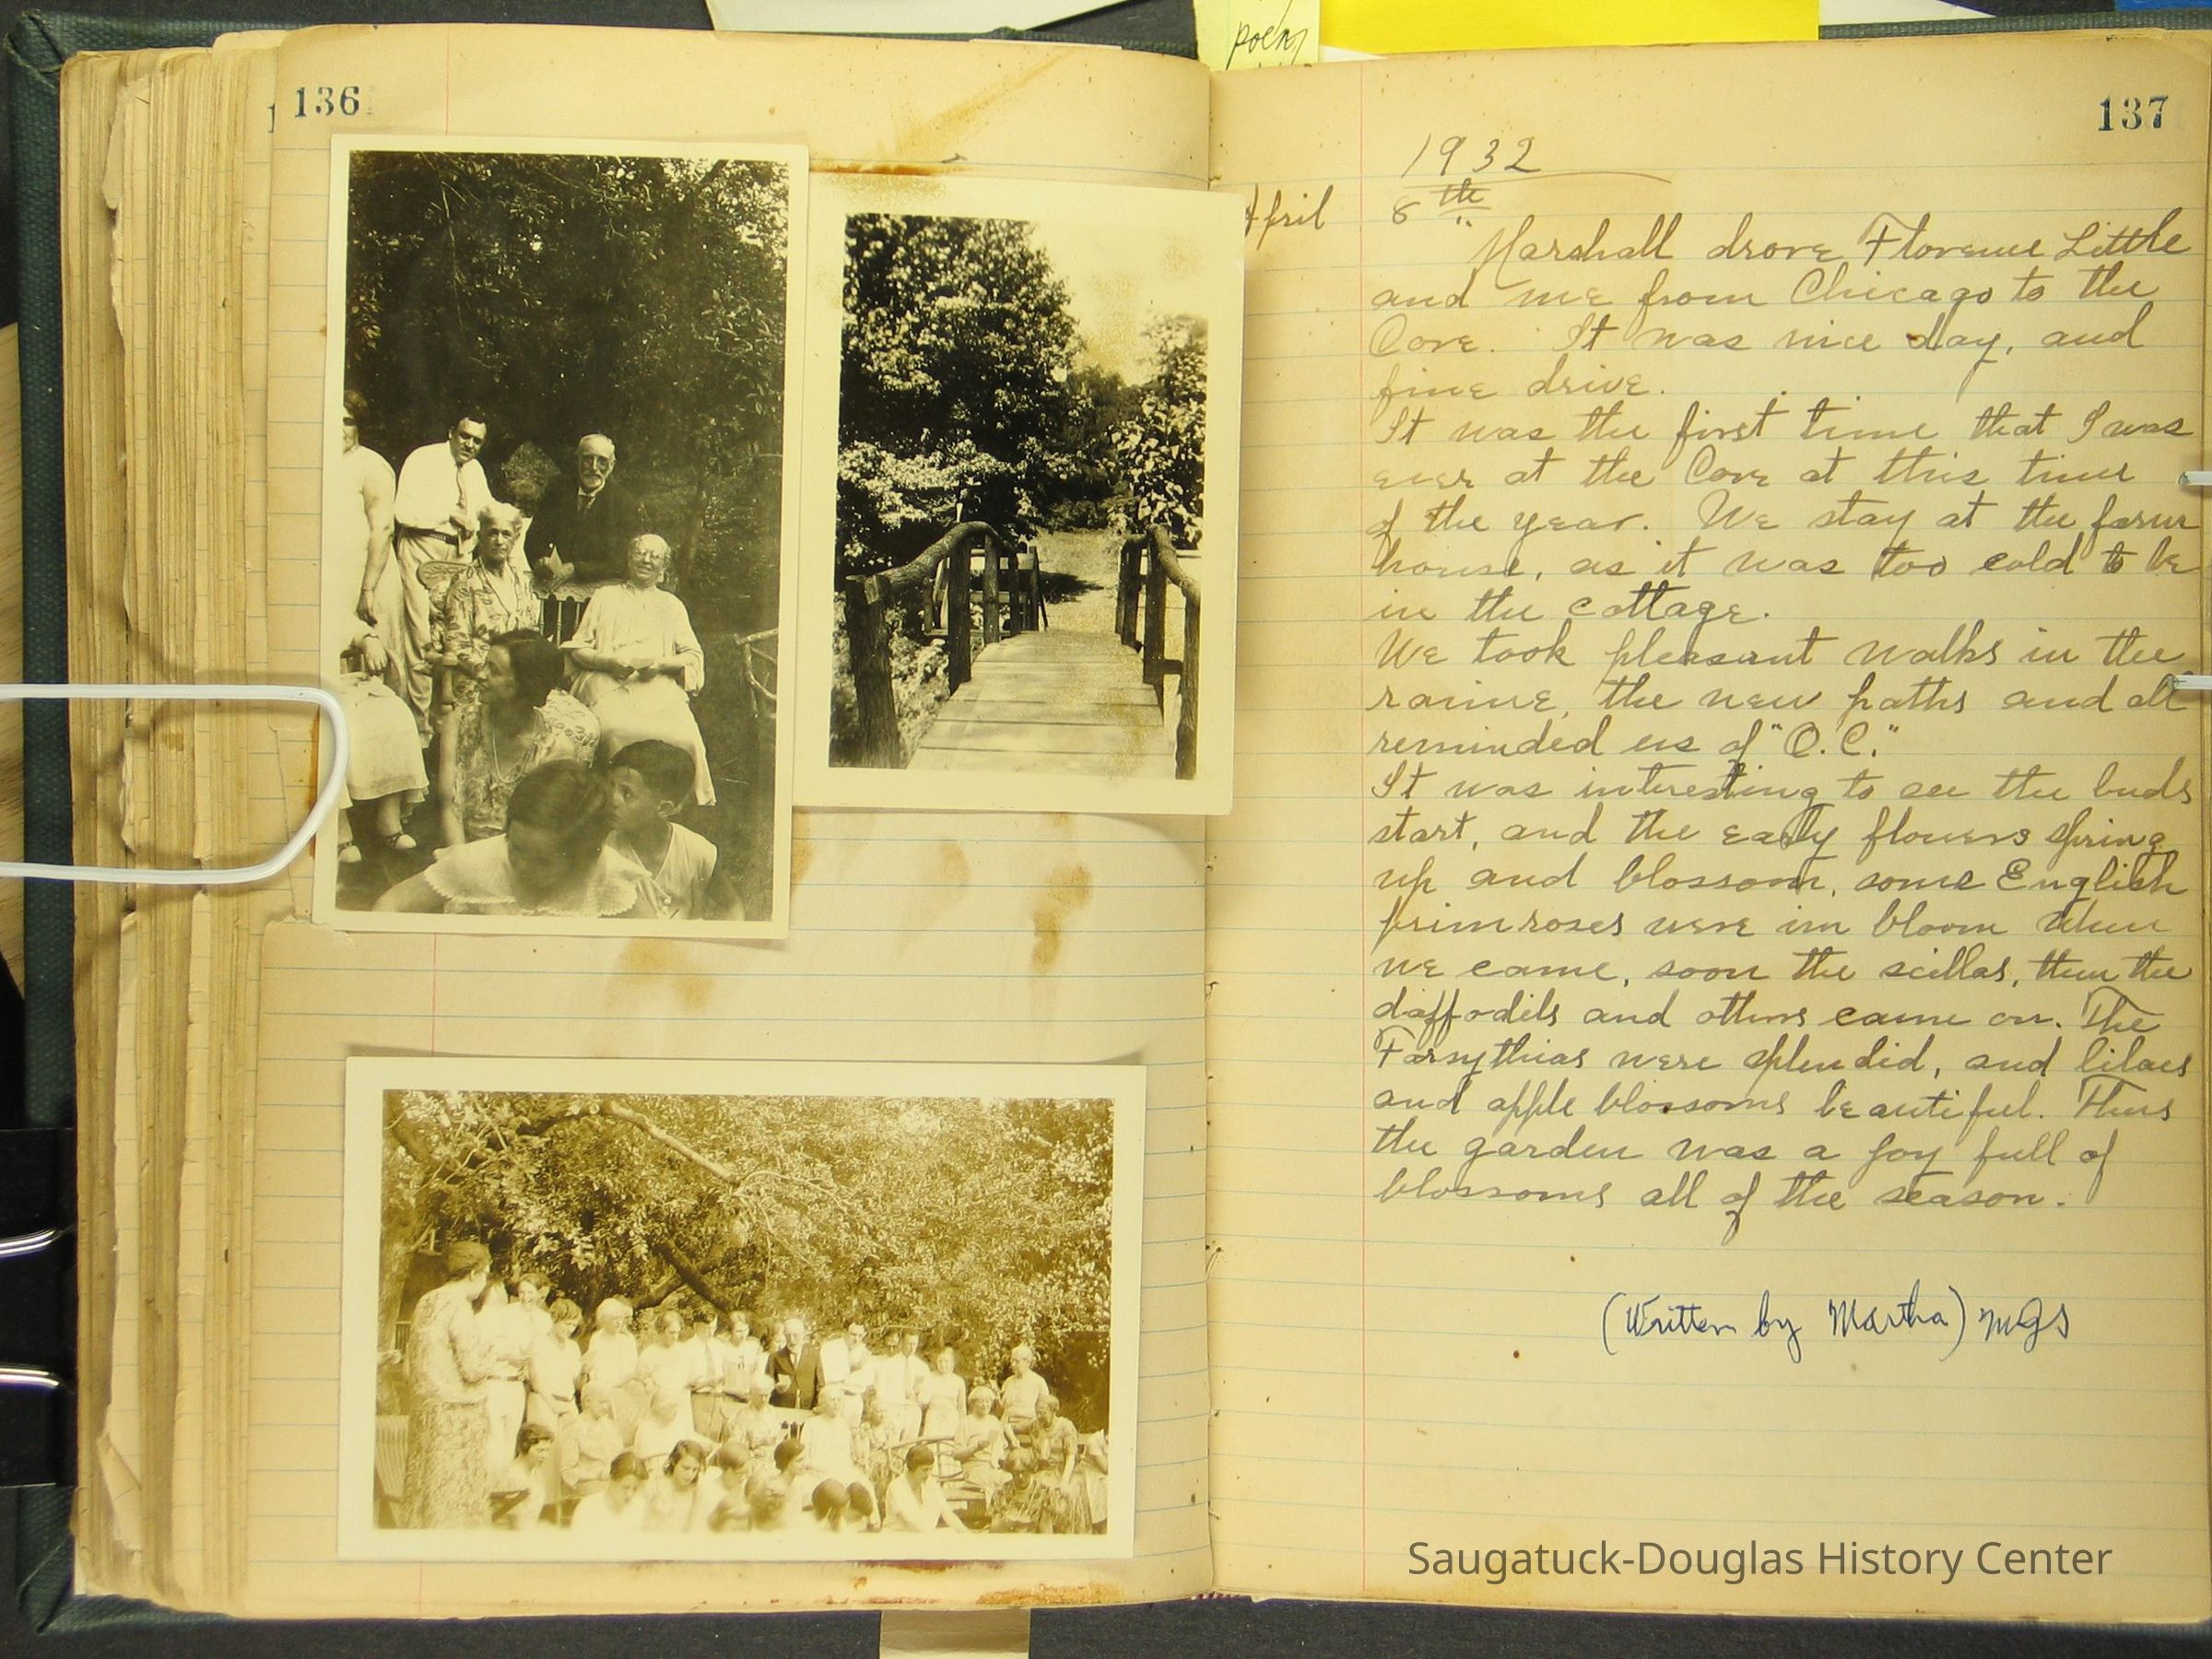 poem
136
137
1932
April 8th
Marshall drove Florence Little
and me from Chicago to the
Cove. It was nice day, and
fine drive.
It was the first time that I was
ever at the Cove at this time
of the year. We stay at the farm
house, as it was too cold to be
in the cottage.
We took pleasant walks in the
ravine, the new paths and all
reminded us of "O.C."
It was interesting to see the buds
start, and the early flowers spring
up and blossom, some English
primroses were im bloom when
we came, soon the scillas, then the
daffodils and others came on. The
Forsythias were splendid, and lilacs
and apple blossoms beautiful. Thus
the garden was a joy full of
blossoms all of the season.
(Written by Martha) MGS
Saugatuck-Douglas History Center